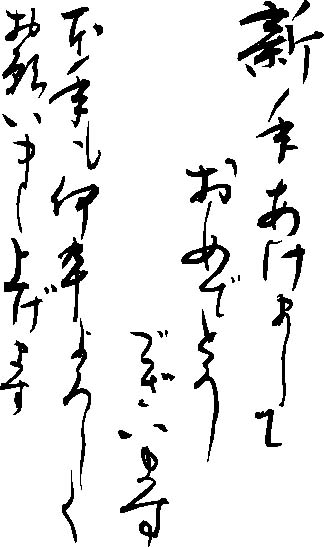 新年あけまして
おめでとう
ございます
本年も何卒よろしく
お願いまし上げます